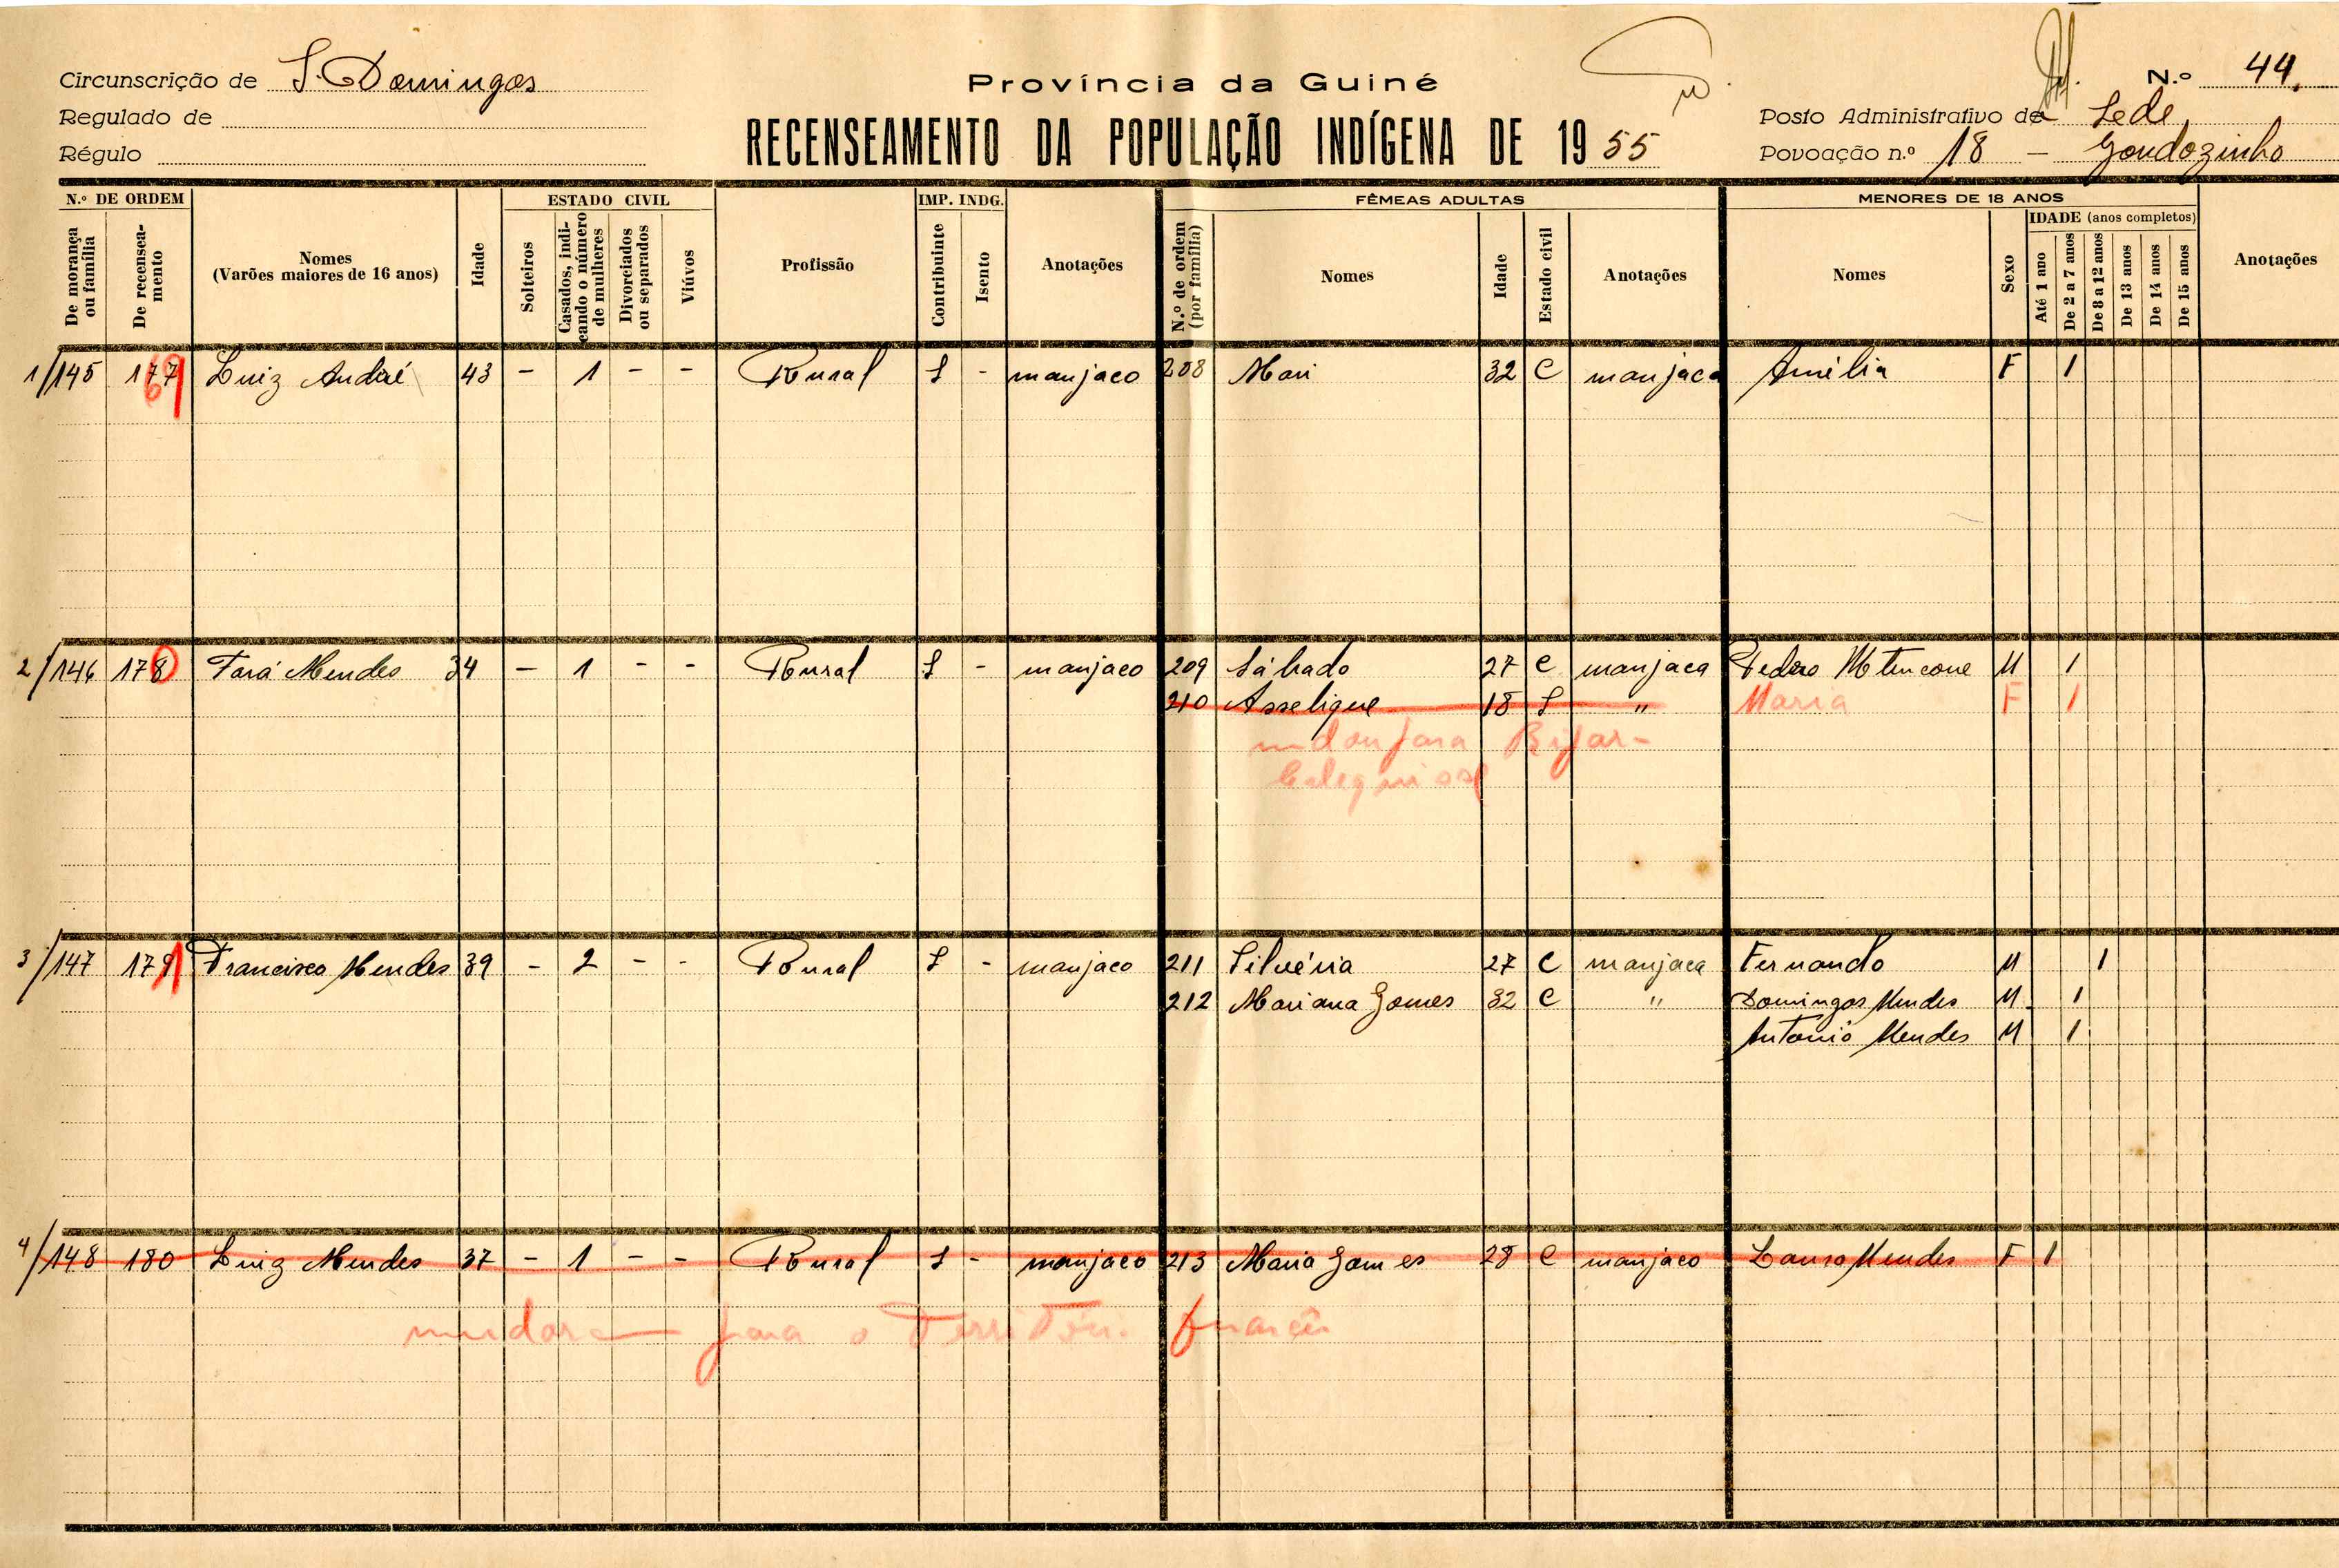 Circunscrição de S. Domingos
Regulado de
Régulo
Província da Guiné
RECENSEAMENTO DA POPULAÇÃO INDÍGENA DE 19 55
N.º 44.
Posto Administrativo da Sede
Povoação n.º 18 - Gondozinho
N.º DE ORDEM
De morança ou família
De recenseamento
Nomes
(Varões maiores de 16 anos)
Idade
ESTADO CIVIL
Solteiros
Casados, indicando o número de mulheres
Divorciados ou separados
Viúvos
Profissão
IMP. INDG.
Contribuinte
Isento
Anotações
FÊMEAS ADULTAS
N.º de ordem (por família)
Nomes
Idade
Estado civil
Anotações
MENORES DE 18 ANOS
Nomes
Sexo
IDADE (anos completos)
Até 1 ano
De 2 a 7 anos
De 8 a 12 anos
De 13 anos
De 14 anos
De 15 anos
Anotações
1/145 177 Luiz André 43 - 1 - - Rural S - manjaco 208 Mari 32 C manjaca Amélia F 1
69
2/146 178 Fará Mendes 34 - 1 - - Rural S - manjaco 209 Sábado 27 C manjaca Pedro M 1
0
210 Asselique 18 S " Maria F 1
mudou para
3/147 179 Francisco Mendes 39 - 2 - - Rural S - manjaco 211 Silvéria 27 C manjaca Fernando M 1
1
212 Mariana Gomes 32 C " Domingos Mendes M 1
António Mendes M 1
4/148 180 Luiz Mendes 37 - 1 - - Rural S - manjaco 213 Maria Gomes 28 C manjaco Laura Mendes F 1
mudaram para o Território francês